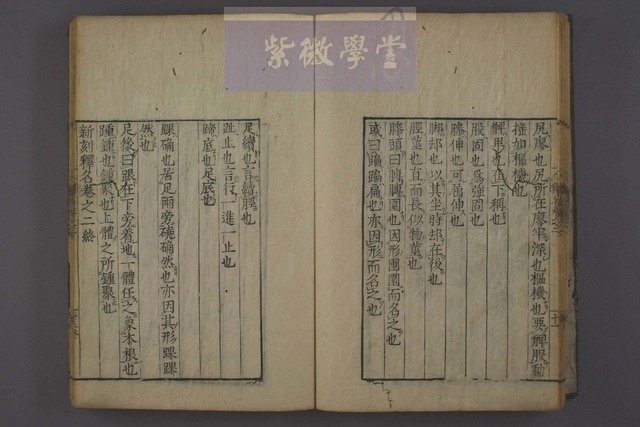 紫微學堂
尻廖也尻所在廖牢深也樞機也要髀股動
搖如樞機也
髀卑也在下稱也
股固也為強固也
膝伸也可屈伸也
脚却也以其坐時却在後也
脛莖也直而長似物莖也
膝頭曰膞膞圍也因形團圜而名之也
或曰蹁蹁扁也亦因形而名之也
足續也言續脛也
趾止也言行一進一止也
蹄底也足底也
踝确也居足兩旁磽确然也亦因其形踝踝
然也
足後曰跟在下旁着地一體任之象木根也
踵鍾也鍾聚也上體之所鍾聚也
新刻釋名卷之二終